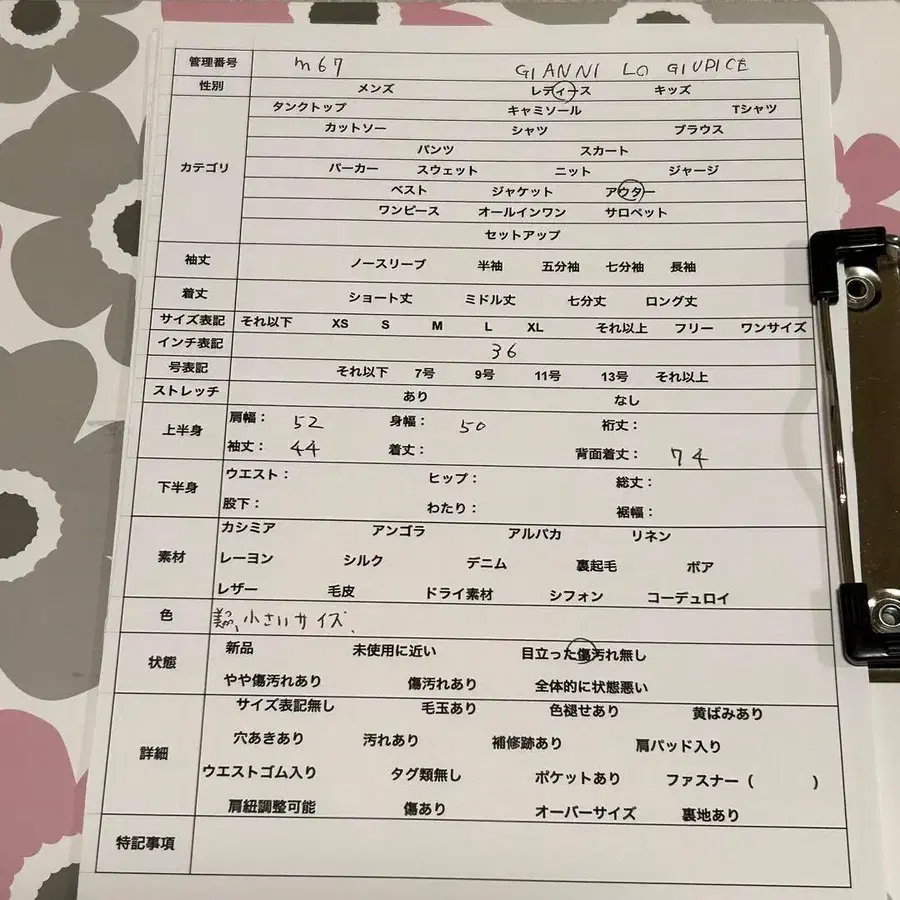 管理番号 m67 GIANNI LO GIUPICE
性別 メンズ レディース キッズ
タンクトップ キャミソール Tシャツ
カットソー シャツ ブラウス
パンツ スカート
カテゴリ パーカー スウェット ニット ジャージ
ベスト ジャケット アウター
ワンピース オールインワン サロペット
セットアップ
袖丈 ノースリーブ 半袖 五分袖 七分袖 長袖
着丈 ショート丈 ミドル丈 七分丈 ロング丈
サイズ表記 それ以下 XS S M L XL それ以上 フリー ワンサイズ
インチ表記 36
号表記 それ以下 7号 9号 11号 13号 それ以上
ストレッチ あり なし
上半身 肩幅: 52 身幅: 50 裄丈:
袖丈: 44 着丈: 背面着丈: 74
下半身 ウエスト: ヒップ: 総丈:
股下: わたり: 裾幅:
カシミア アンゴラ アルパカ リネン
素材 レーヨン シルク デニム 裏起毛 ボア
レザー 毛皮 ドライ素材 シフォン コーデュロイ
色 小さいサイズ、
状態 新品 未使用に近い 目立った傷汚れ無し
やや傷汚れあり 傷汚れあり 全体的に状態悪い
サイズ表記無し 毛玉あり 色褪せあり 黄ばみあり
詳細 穴あきあり 汚れあり 補修跡あり 肩パッド入り
ウエストゴム入り タグ類無し ポケットあり ファスナー( )
肩紐調整可能 傷あり オーバーサイズ 裏地あり
特記事項